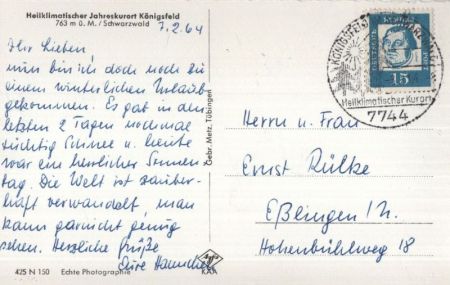 Heilklimatischer Jahreskurort Königsfeld
763 m ü. M. / Schwarzwald
7.2.64
Ihr Lieben,
nun bin ich doch noch zu
einem winterlichen Urlaub
gekommen. Es gab in den
letzten 2 Tagen nochmal
tüchtig Schnee u. heute
war ein herrlicher Sonnen
tag. Die Welt ist zauber-
haft verwandelt, man
kann garnicht genug
sehen. Herzliche Grüße
Eure
425 N 150 Echte Photographie
Gebr. Metz, Tübingen
Agfa
KAK
KÖNIGSFELD
Heilklimatischer Kurort
7744
DEUTSCHE
15
Herrn u. Frau
Ernst Rülke
Eßlingen/N.
Hohenbühlweg 18